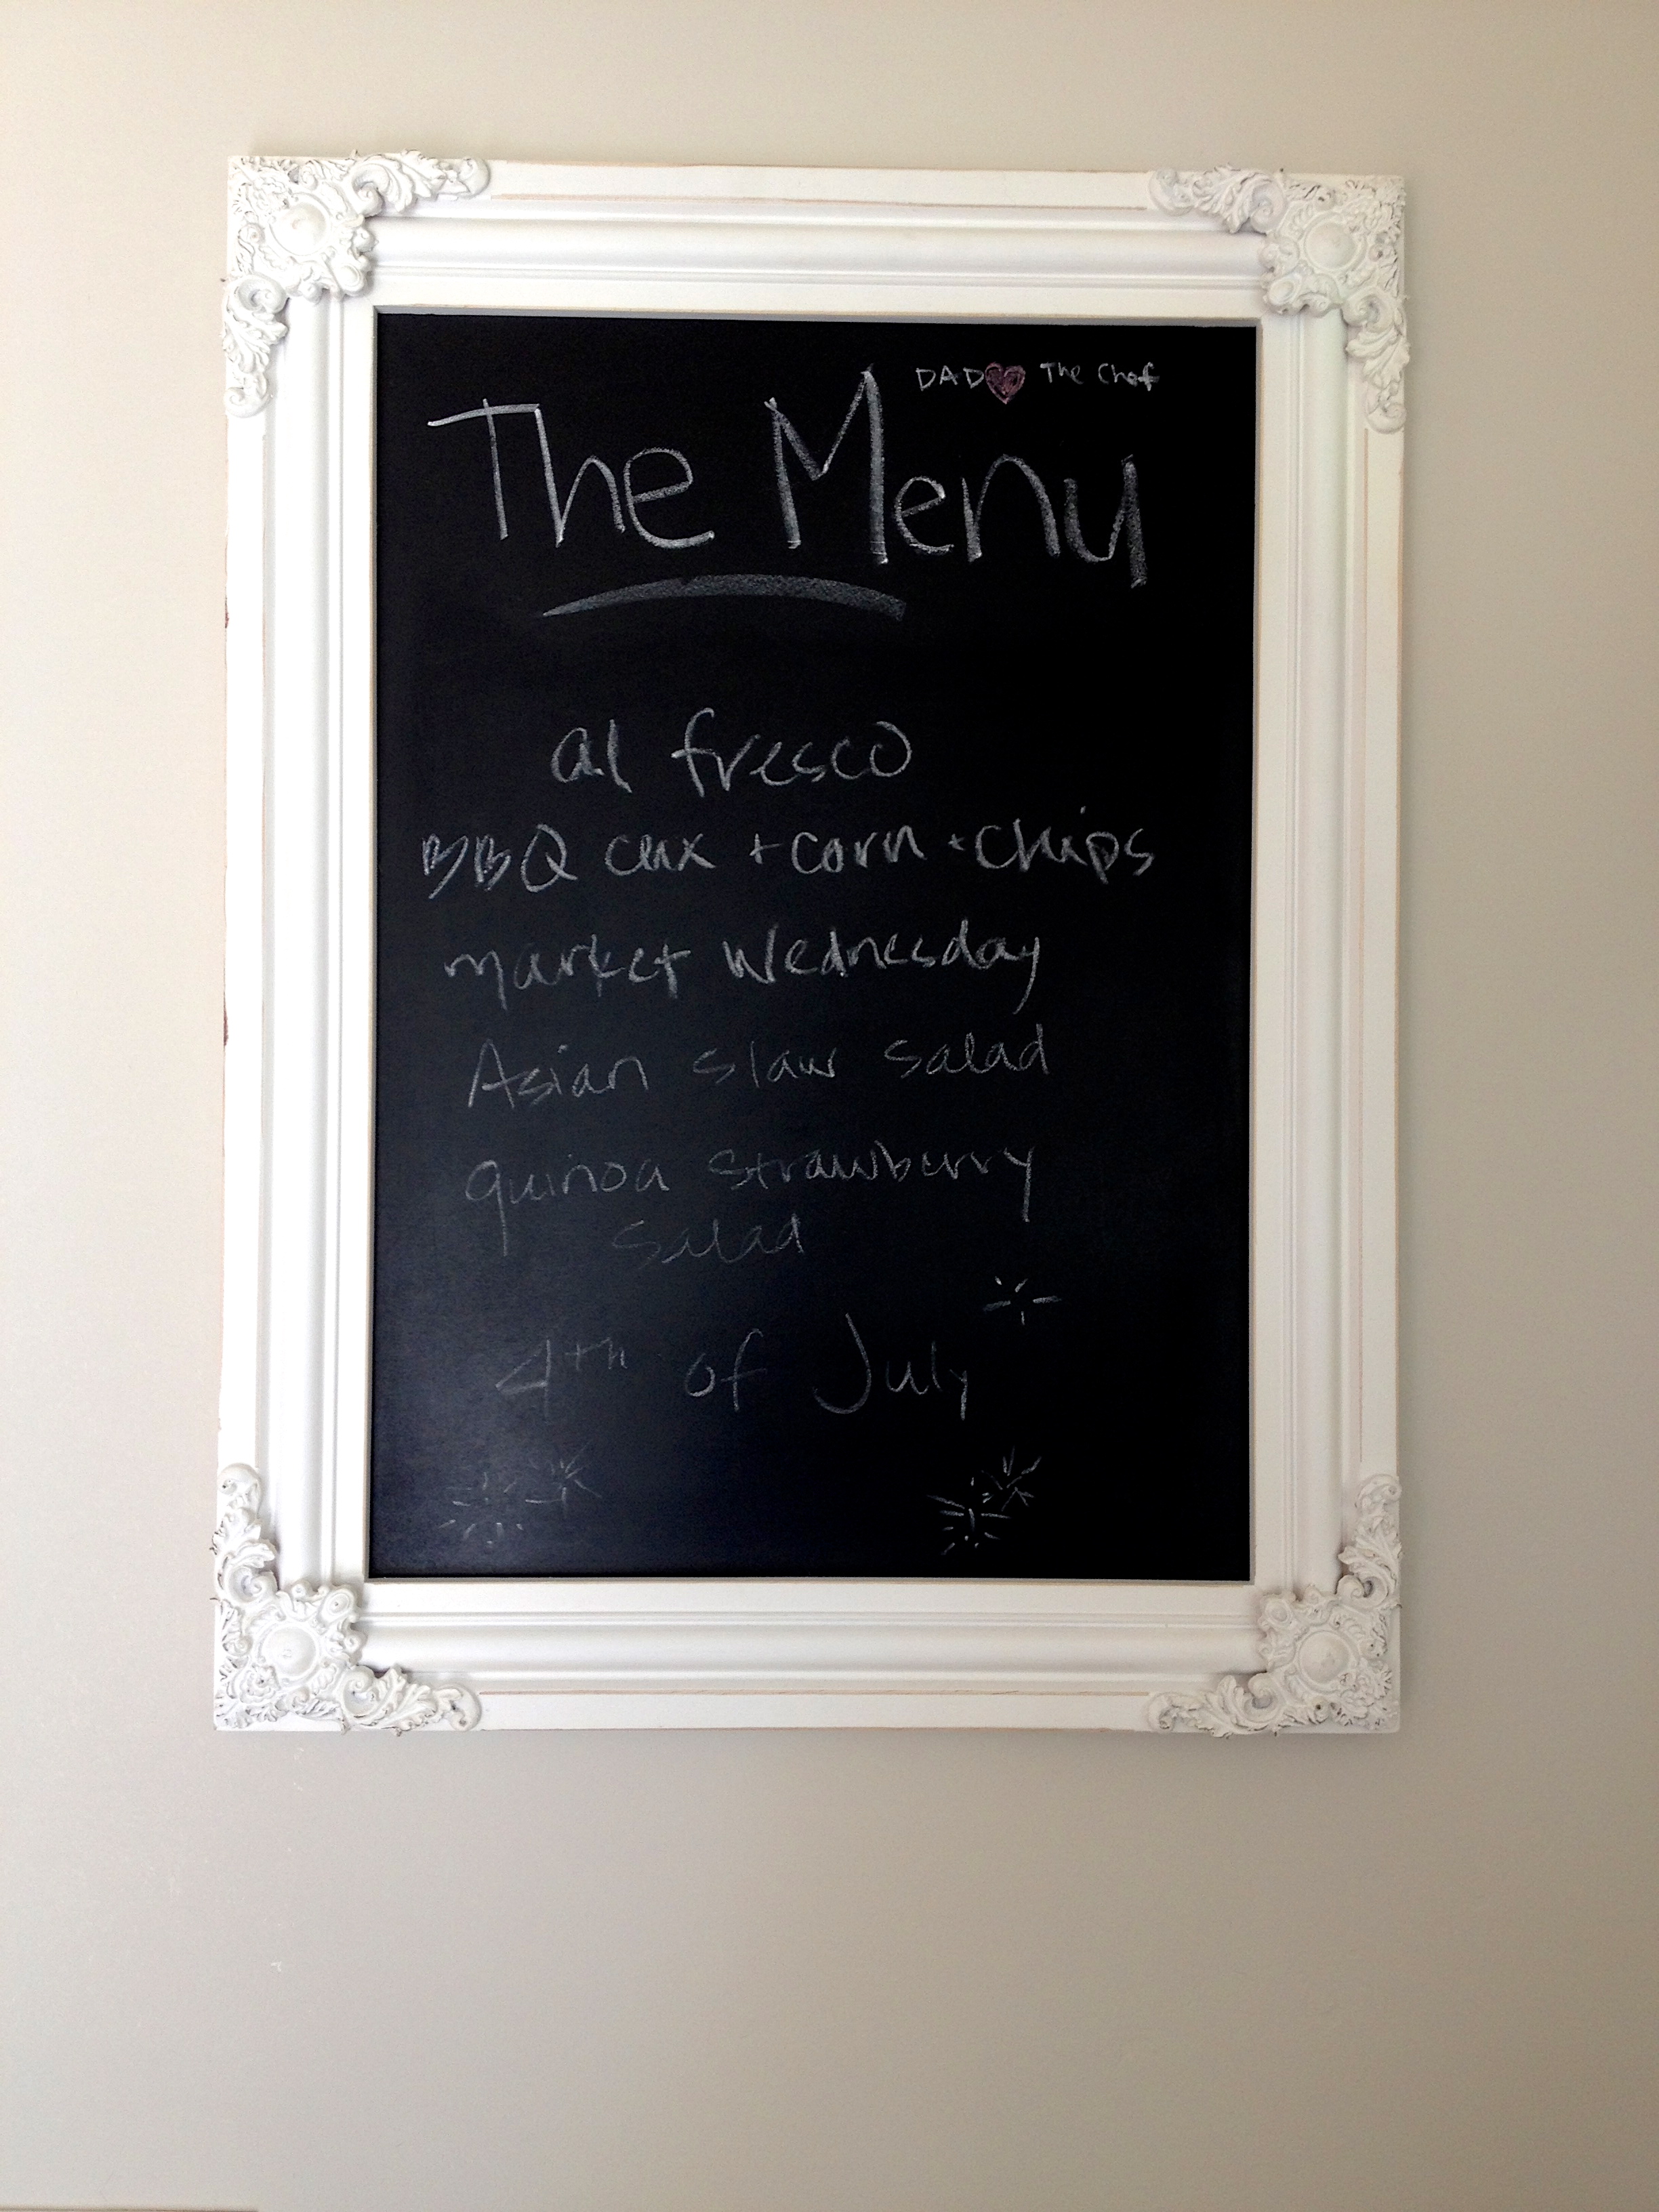 DAD The Chef
The Menu
al fresco
BBQ cnx + corn + chips
market Wednesday
Asian slaw salad
quinoa strawberry
salad
4th of July